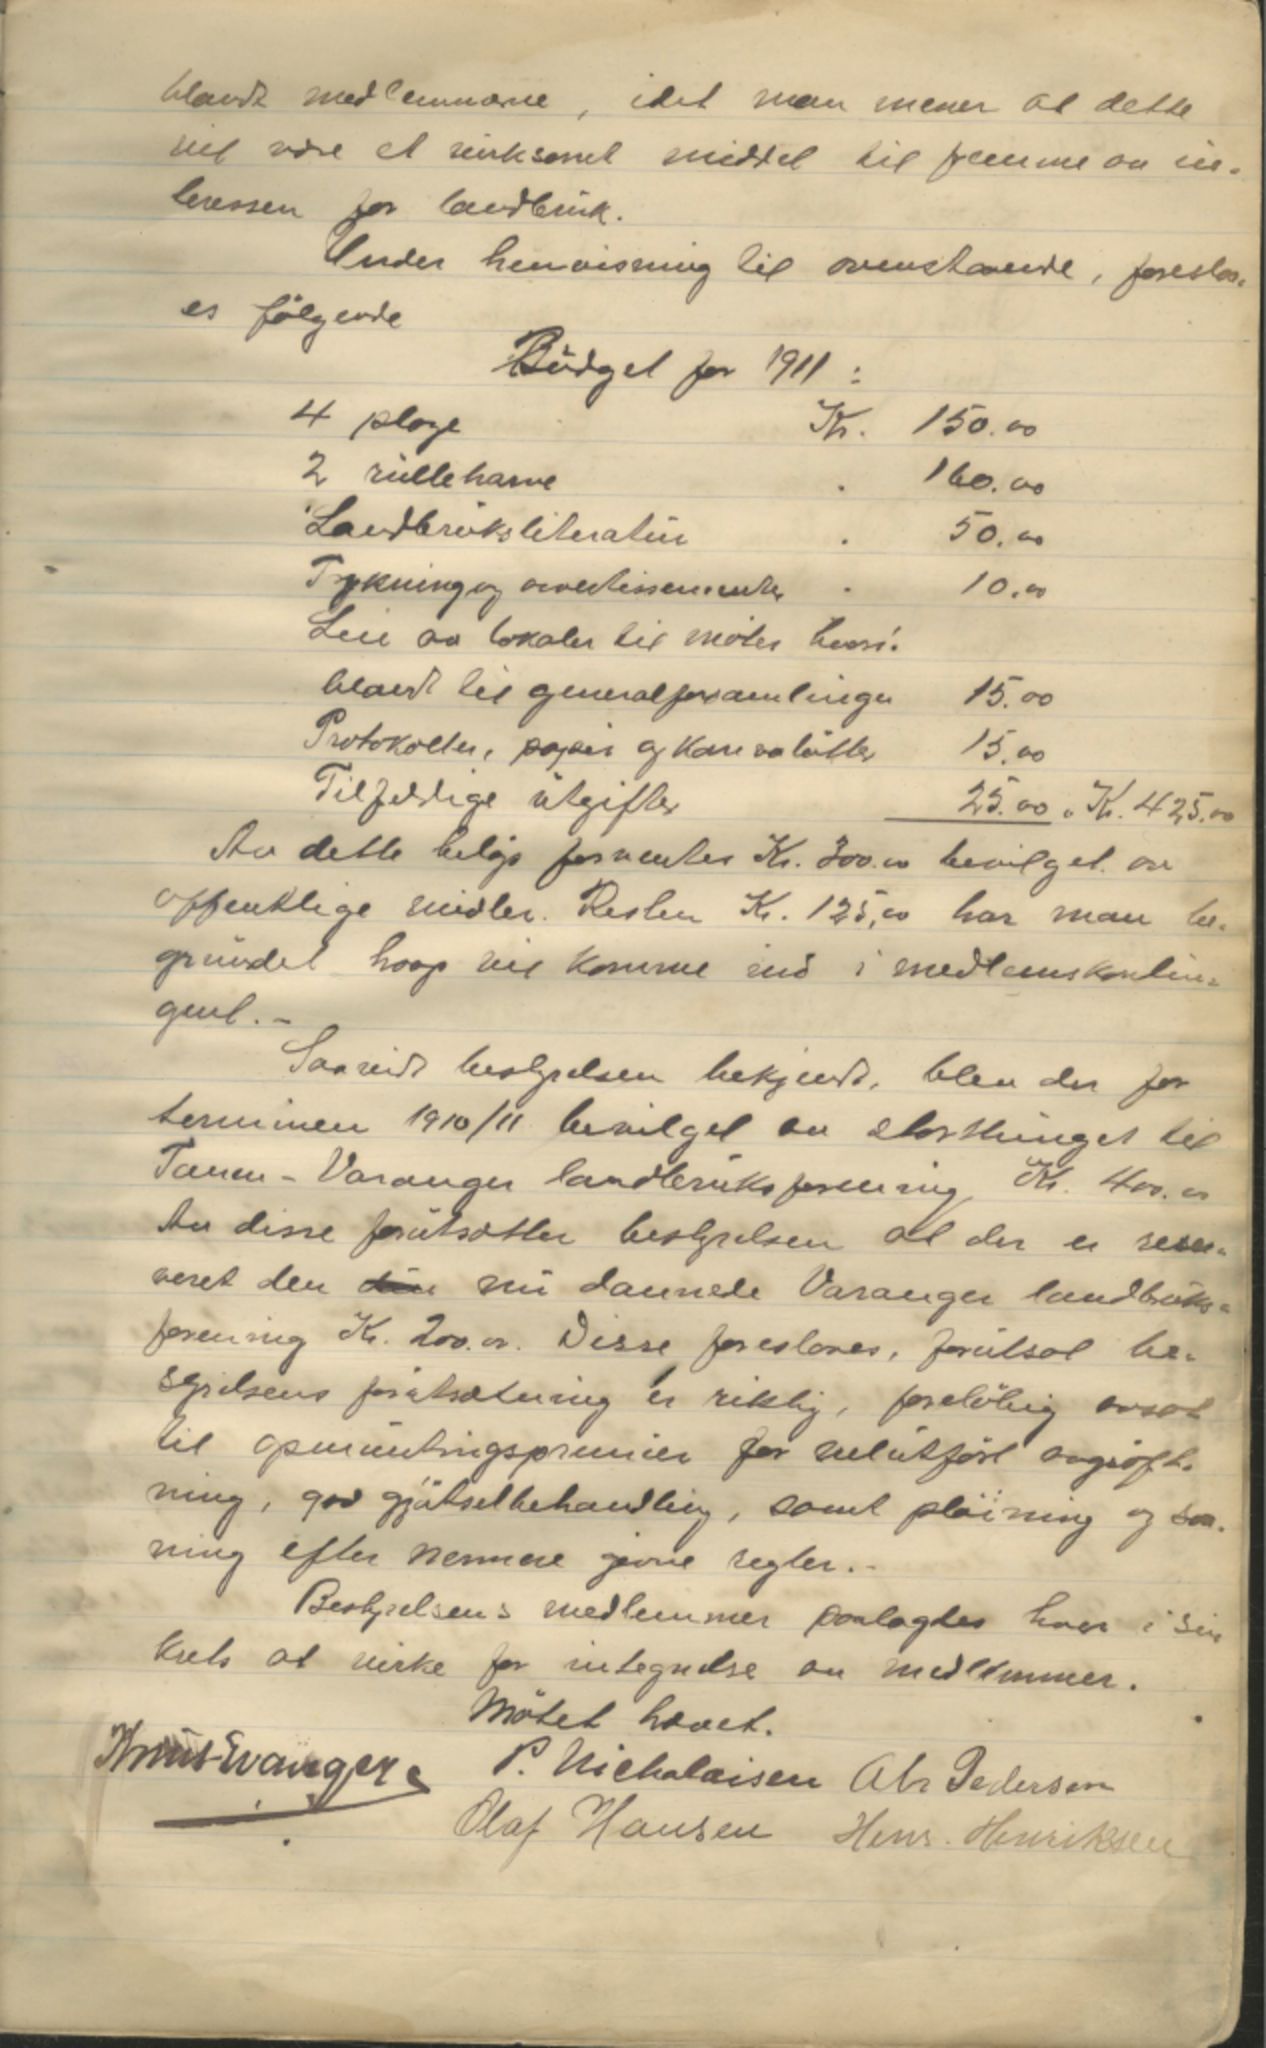 blandt medlemmerne, idet man mener at dette
vil være et virksomt middel til fremme av in-
teressen for landbruk.
Under henvisning til ovenstaaende, foreslaa-
es følgende
Budget for 1911:
4 ploge Kr. 150.00
2 rulleharve . 160.00
Landbruksliteratur . 50.00
Trykning og avertissementer . 10.00
Leie av lokaler til møter hvori-
blandt til generalforsamlinger 15.00
Protokoller, papir og konvolutter 15.00
Tilfeldige utgifter 25.00 . Kr. 425.00
Av dette beløp forventes Kr. 300.00 bevilget av
offentlige midler. Resten Kr. 125,00 har man be-
grundet haap vil komme ind i medlemskontin-
gent.-
Saavidt bestyrelsen bekjendt, blev der for
terminen 1910/11 bevilget av stortinget til
Tanen-Varanger landbruksforening Kr. 400.00
Av disse forutsætter bestyrelsen at der er reser-
veret den nu dannede Varanger landbruks-
forening Kr. 200.00. Disse foreslaaes, forutsat be-
syrelsens forutsætning er riktig, foreløbig avsat
til opmuntringspremier for velutført avgrøft-
ning, god gjødselbehandling, samt pløining og saa-
ning efter nermere givne regler.-
Bestyrelsens medlemmer paalagdes hver i sin
kreds at virke for indtegnelse av medlemmer.
Møtet hævet.
Knut Evanger. P. Nicholaisen Abr Pedersen
Olaf Hansen Henr. Henriksen